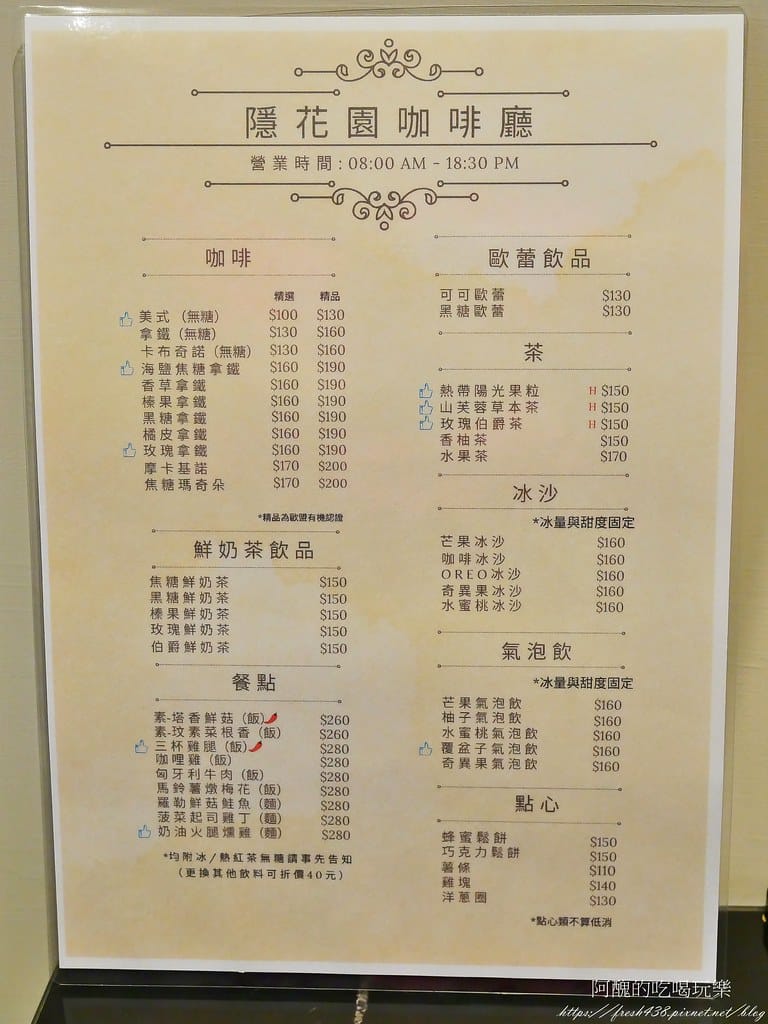 隱花園咖啡廳
營業時間:08:00 AM - 18:30 PM
咖啡
精選 精品
美式 (無糖) $100 $130
拿鐵 (無糖) $130 $160
卡布奇諾 (無糖) $130 $160
海鹽焦糖拿鐵 $160 $190
香草拿鐵 $160 $190
榛果拿鐵 $160 $190
黑糖拿鐵 $160 $190
橘皮拿鐵 $160 $190
玫瑰拿鐵 $160 $190
摩卡基諾 $170 $200
焦糖瑪奇朵 $170 $200
*精品為歐盟有機認證
鮮奶茶飲品
焦糖鮮奶茶 $150
黑糖鮮奶茶 $150
榛果鮮奶茶 $150
玫瑰鮮奶茶 $150
伯爵鮮奶茶 $150
餐點
素-塔香鮮菇 (飯) $260
素-玟素菜根香 (飯) $260
三杯雞腿 (飯) $280
咖哩雞 (飯) $280
匈牙利牛肉 (飯) $280
馬鈴薯燉梅花 (飯) $280
羅勒鮮菇鮭魚 (麵) $280
菠菜起司雞丁 (麵) $280
奶油火腿燻雞 (麵) $280
*均附冰/熱紅茶無糖請事先告知
(更換其他飲料可折價40元)
歐蕾飲品
可可歐蕾 $130
黑糖歐蕾 $130
茶
熱帶陽光果粒 H $150
山芙蓉草本茶 H $150
玫瑰伯爵茶 H $150
香柚茶 $150
水果茶 $170
冰沙
*冰量與甜度固定
芒果冰沙 $160
咖啡冰沙 $160
OREO冰沙 $160
奇異果冰沙 $160
水蜜桃冰沙 $160
氣泡飲
*冰量與甜度固定
芒果氣泡飲 $160
柚子氣泡飲 $160
水蜜桃氣泡飲 $160
覆盆子氣泡飲 $160
奇異果氣泡飲 $160
點心
蜂蜜鬆餅 $150
巧克力鬆餅 $150
薯條 $110
雞塊 $140
洋蔥圈 $130
*點心類不算低消
阿醜的吃喝玩樂
https://fresh438.pixnet.net/blog